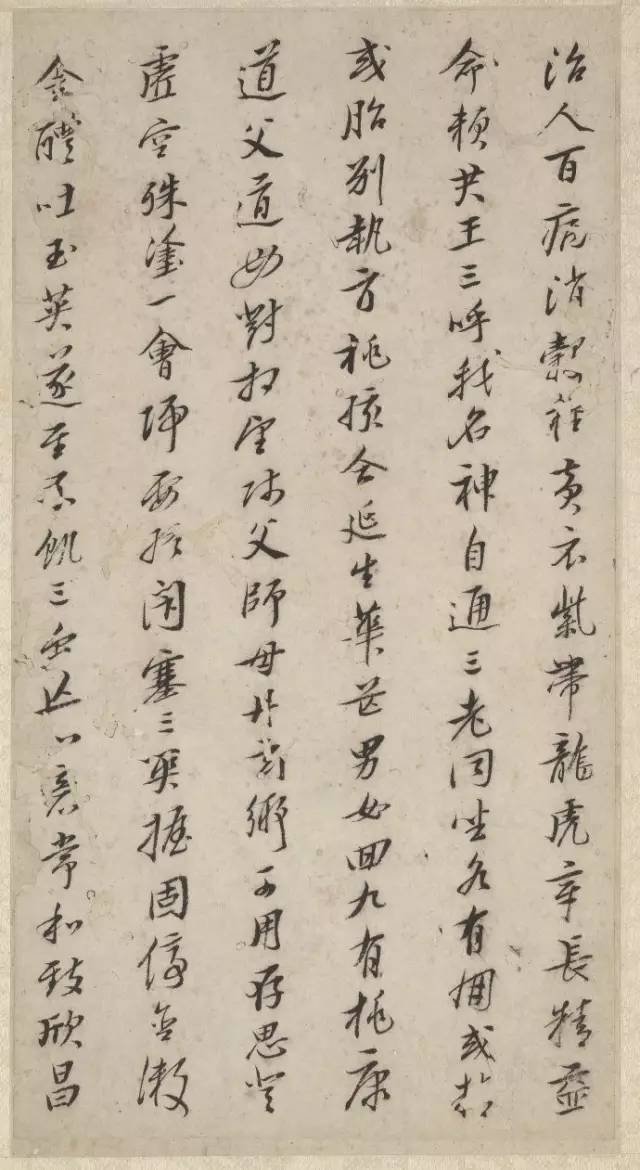 治人百疴消穀粮黄衣紫帶龍虎章長精益
命頼共王三呼我名神自通三老同坐各有朋或精
或胎別執方桃孩合延生華芒男女回九有桃康
道父道母對相望師父師母丹玄鄉可用存思登
虛空殊塗一會歸要終閉塞三關握固停含漱
金醴吐玉英遂至不飢三虫亡心意常和致欣昌